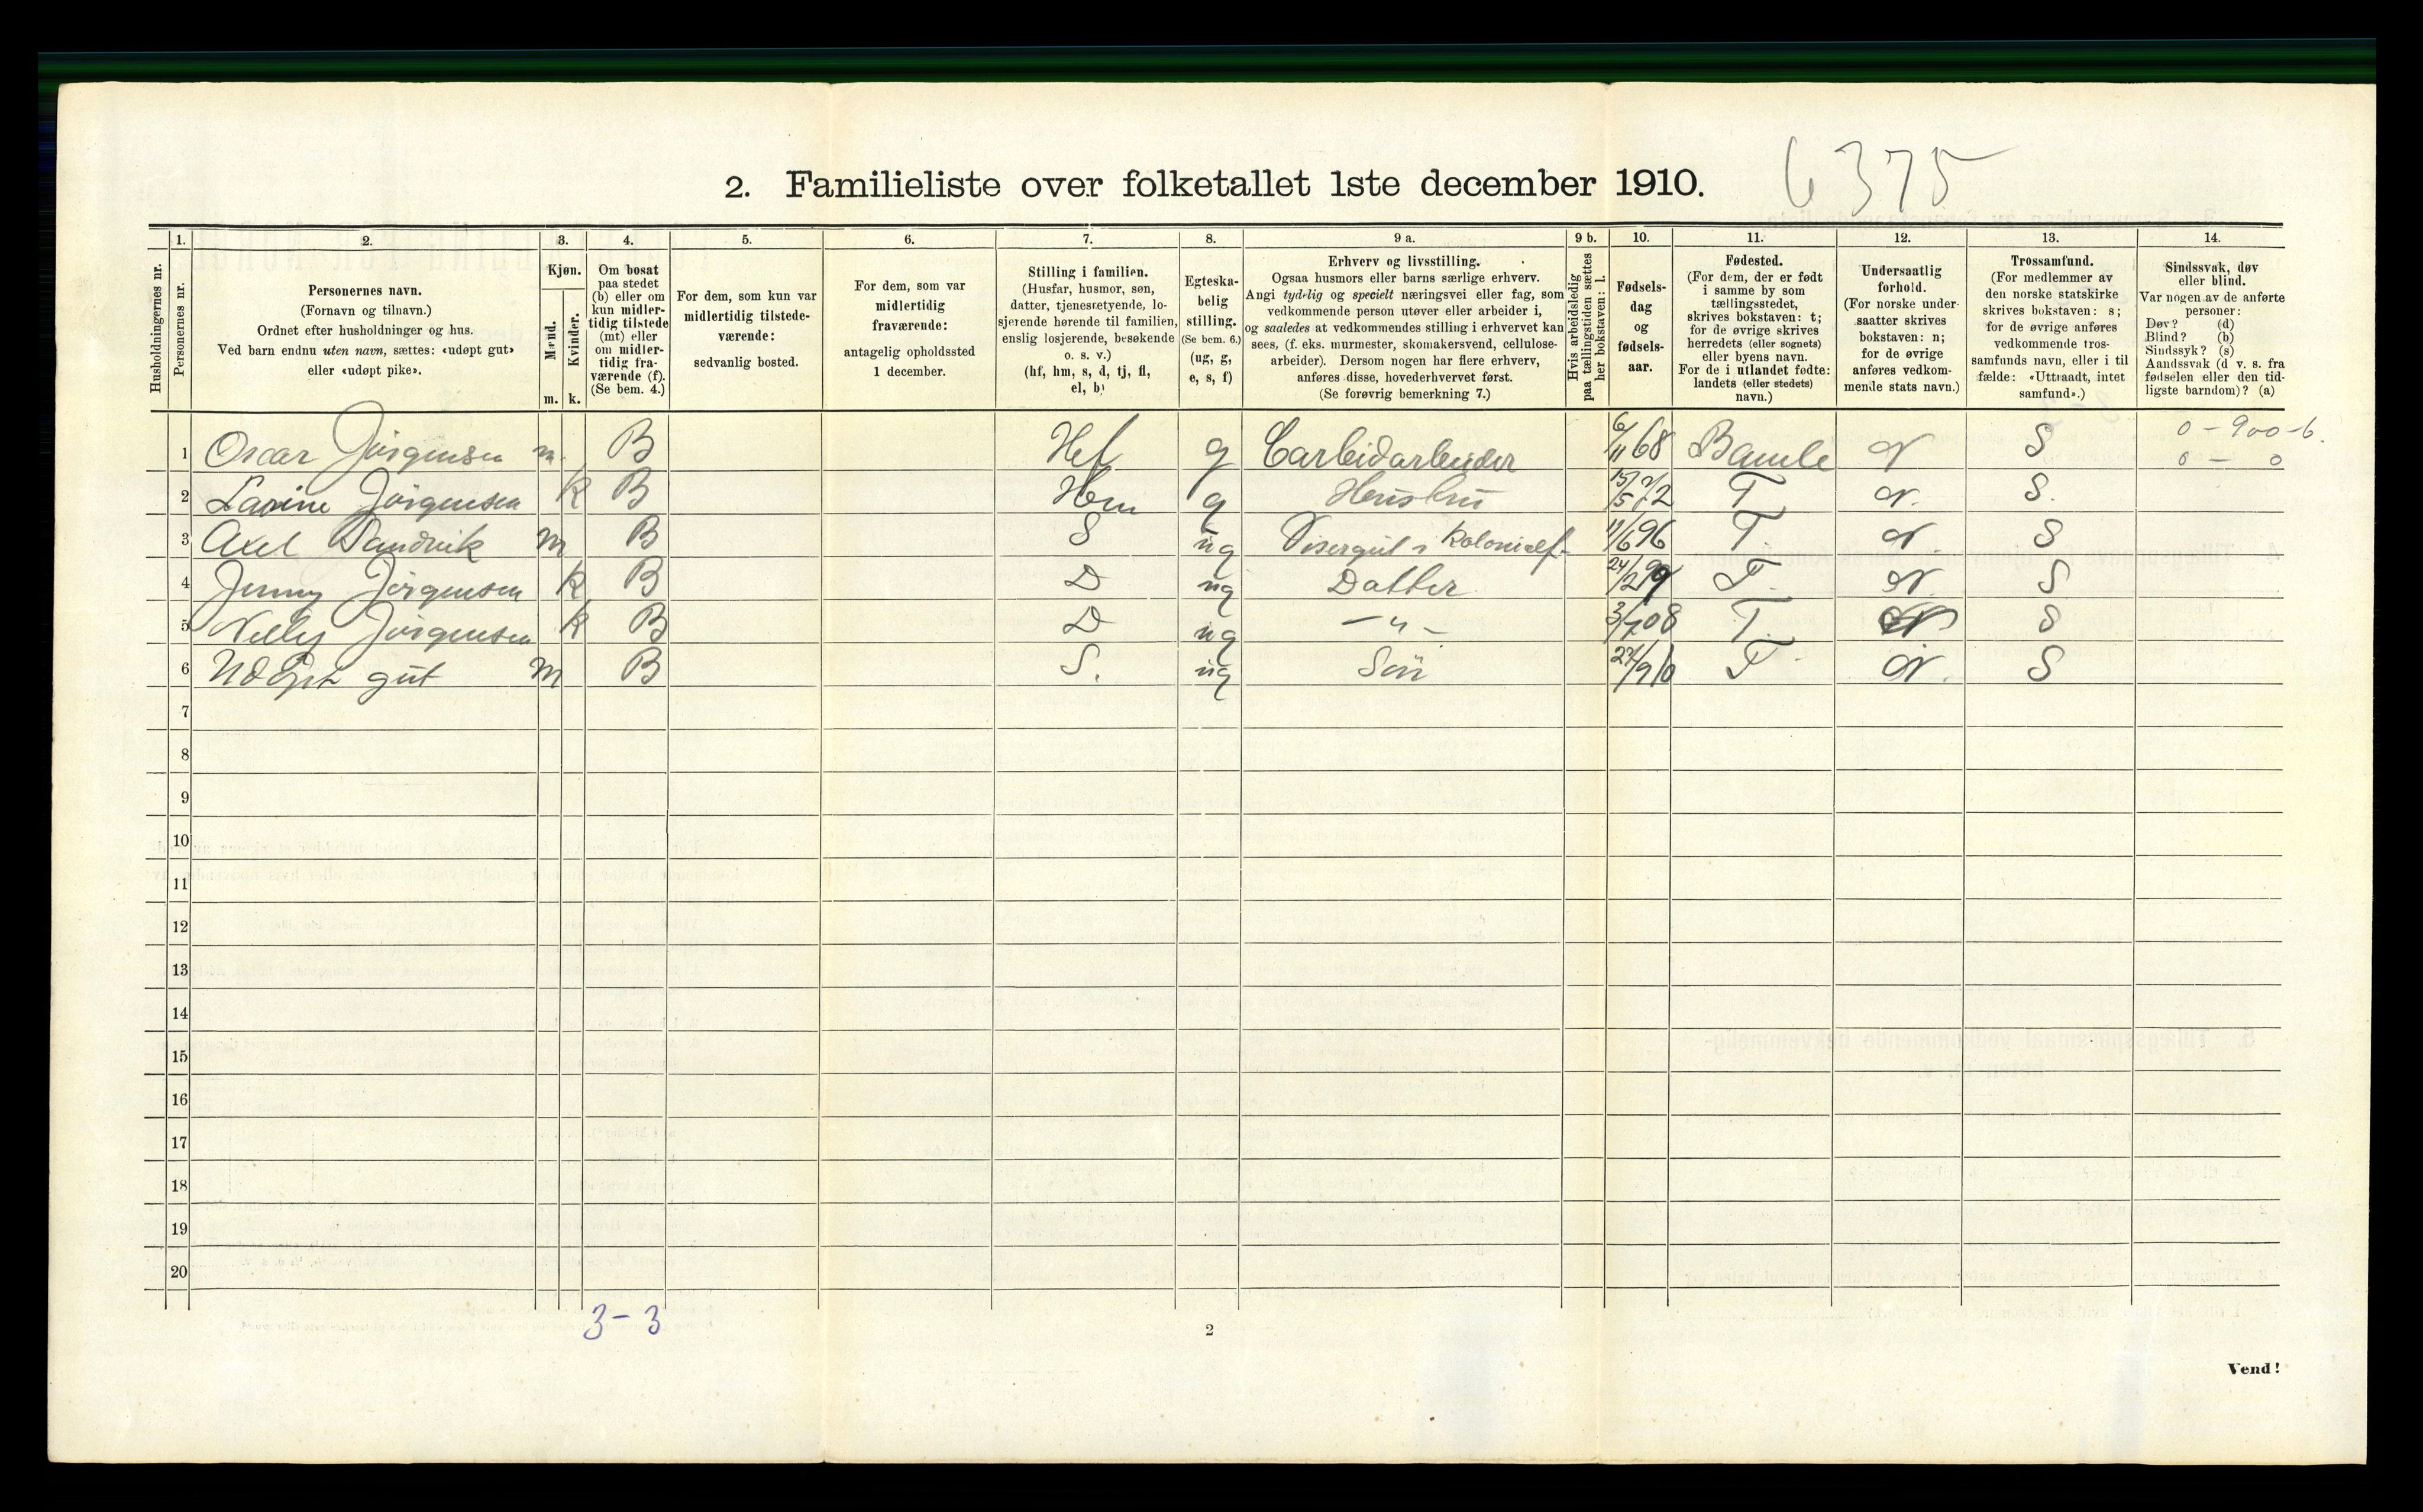 6375
2. Familieliste over folketallet 1ste december 1910.
Husholdningernes nr.
1.
Personernes nr.
2.
Personernes navn.
(Fornavn og tilnavn.)
Ordnet efter husholdninger og hus.
Ved barn endnu uten navn, sættes: «udøpt gut»
eller «udøpt pike».
3.
Kjøn.
Mænd.
Kvinder.
m. k.
4.
Om bosat
paa stedet
(b) eller om
kun midler-
tidig tilstede
(mt) eller
om midler-
tidig fra-
værende (f).
(Se bem. 4.)
5.
For dem, som kun var
midlertidig tilstede-
værende:
sedvanlig bosted.
6.
For dem, som var
midlertidig
fraværende:
antagelig opholdssted
1 december.
7.
Stilling i familien.
(Husfar, husmor, søn,
datter, tjenestetyende, lo-
sjerende hørende til familien,
enslig losjerende, besøkende
o. s. v.)
(hf, hm, s, d, tj, fl,
el, b)
8.
Egteska-
belig
stilling.
(Se bem. 6.)
(ug, g,
e, s, f)
9 a.
Erhverv og livsstilling.
Ogsaa husmors eller barns særlige erhverv.
Angi tydelig og specielt næringsvei eller fag, som
vedkommende person utøver eller arbeider i,
og saaledes at vedkommendes stilling i erhvervet kan
sees, (f. eks. murmester, skomakersvend, cellulose-
arbeider). Dersom nogen har flere erhverv,
anføres disse, hovederhvervet først.
(Se forøvrig bemerkning 7.)
9 b.
Hvis arbeidsledig
paa tællingstiden sættes
her bokstaven: l.
10.
Fødsels-
dag
og
fødsels-
aar.
11.
Fødested.
(For dem, der er født
i samme by som
tællingsstedet,
skrives bokstaven: t;
for de øvrige skrives
herredets (eller sognets)
eller byens navn.
For de i utlandet fødte:
landets (eller stedets)
navn.)
12.
Undersaatlig
forhold.
(For norske under-
saatter skrives
bokstaven: n;
for de øvrige
anføres vedkom-
mende stats navn.)
13.
Trossamfund.
(For medlemmer av
den norske statskirke
skrives bokstaven: s;
for de øvrige anføres
vedkommende tros-
samfunds navn, eller i til
fælde: «Uttraadt, intet
samfund».)
14.
Sindssvak, døv
eller blind.
Var nogen av de anførte
personer:
Døv? (d)
Blind? (b)
Sindssyk? (s)
Aandssvak (d v. s. fra
fødselen eller den tid-
ligste barndom)? (a)
1 Oscar Jørgensen m. B Hf g Carbidarbeider 6/11 68 Bamle N S 0 - 900 - 6.
0 - 0
2 Lavine Jörgensen k B Hm g Hustru 15/5 72 T N. S.
3 Axel Sandvik m B S ug Visergut i Kolonialf. 11/6 96 T. N. S
4 Jenny Jörgensen k B D ug Datter 24/2 99 T. N. S
5 Nelly Jörgensen k B D ug -"- 3/7 08 T. N S
6 Udøpt gut m B S. ug Sön 27/9 10 T. N. S
7
8
9
10
11
12
13
14
15
16
17
18
19
20
3 - 3
2
Vend!